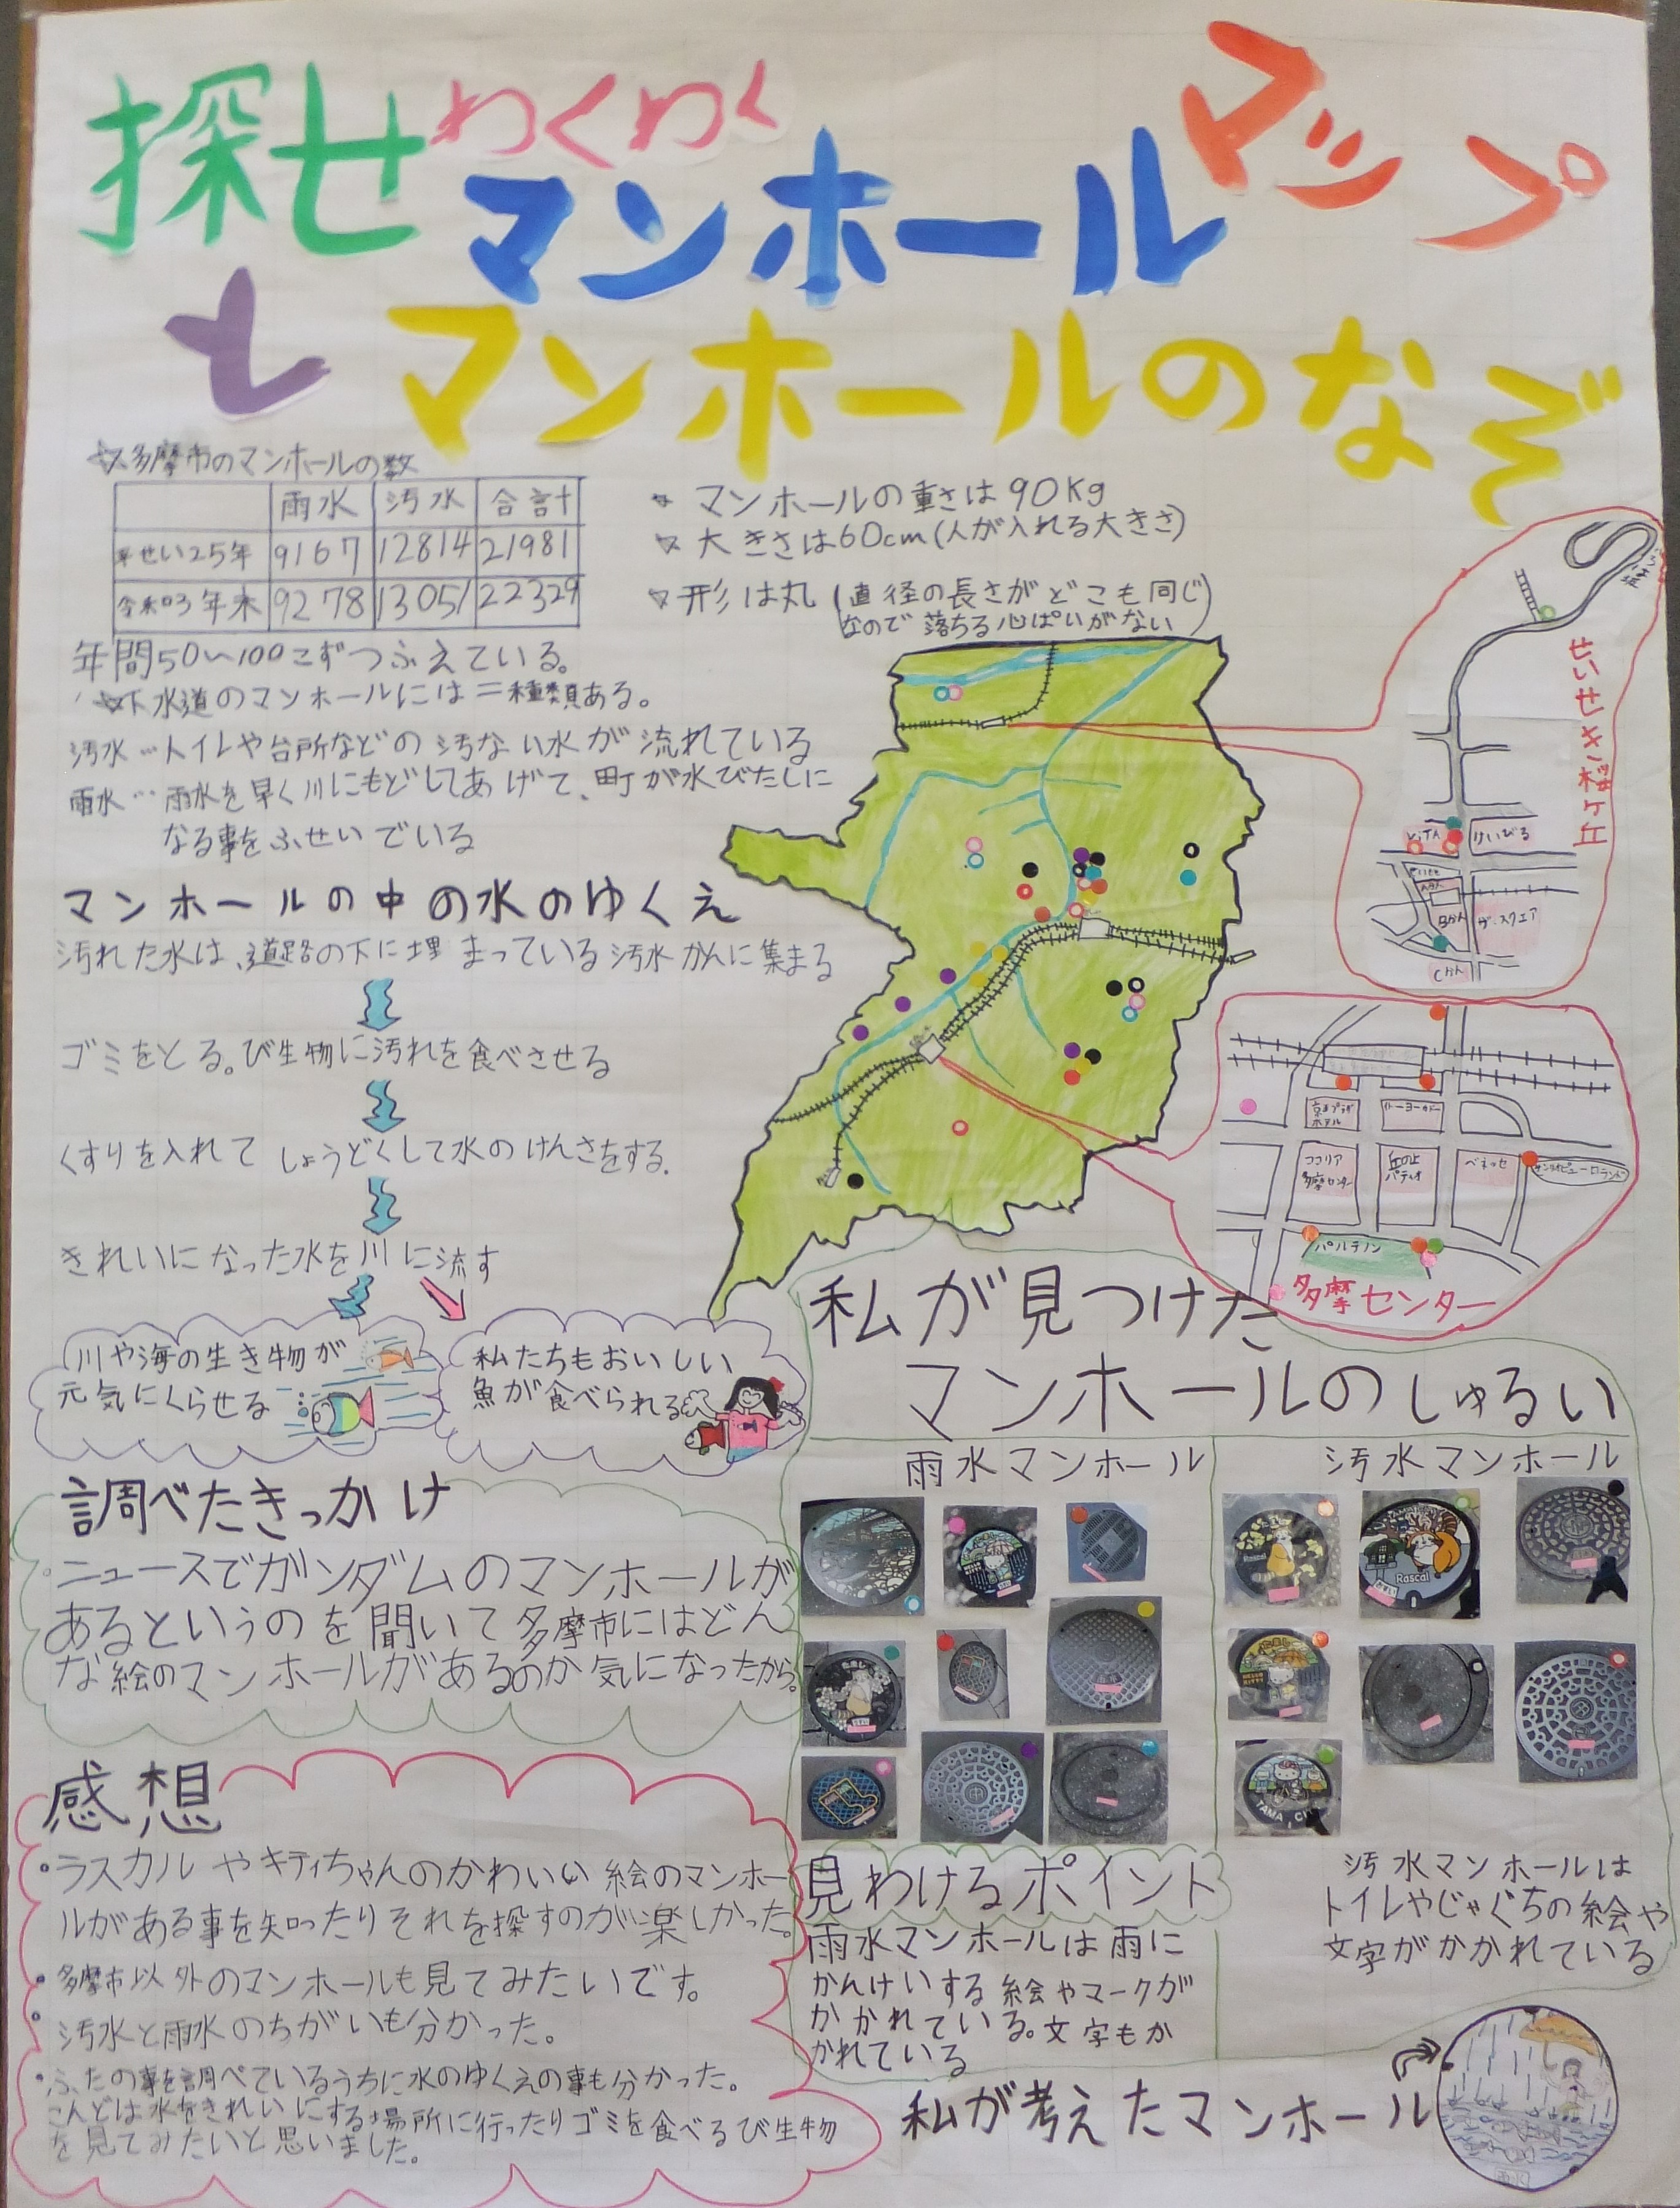 探せ わくわく
マンホール マップ
と マンホールのなぞ
多摩市のマンホールの数
雨水 汚水 合計
平せい25年 9167 12814 21981
令和3年末 9278 13051 22329
年間50〜100こずつふえている。
下水道のマンホールには二種類ある。
汚水…トイレや台所などの汚ない水が流れている
雨水…雨水を早く川にもどしてあげて、町が水びたしに
なる事をふせいでいる
マンホールの重さは90Kg
大きさは60cm(人が入れる大きさ)
形は丸(直径の長さがどこも同じ
なので落ちる心ぱいがない)
マンホールの中の水のゆくえ
汚れた水は、道路の下に埋まっている汚水かんに集まる
ゴミをとる。び生物に汚れを食べさせる
くすりを入れてしょうどくして水のけんさをする。
きれいになった水を川に流す
川や海の生き物が
元気にくらせる
私たちもおいしい
魚が食べられる
せいせき桜ヶ丘
いろは坂
けいびる
Aかん
Bかん
ザ・スクエア
Cかん
京王プラザ
ホテル
イトーヨーカドー
ココリア
多摩センター
丘の上
パティオ
ベネッセ
サンリオピューロランド
パルテノン
多摩センター
調べたきっかけ
ニュースでガンダムのマンホールが
あるというのを聞いて多摩市にはどん
な絵のマンホールがあるのか気になったから。
感想
ラスカルやキティちゃんのかわいい絵のマンホー
ルがある事を知ったりそれを探すのが楽しかった。
多摩市以外のマンホールも見てみたいです。
汚水と雨水のちがいも分かった。
ふたの事を調べているうちに水のゆくえの事も分かった。
こんどは水をきれいにする場所に行ったりゴミを食べるび生物
を見てみたいと思いました。
私が見つけた
マンホールのしゅるい
雨水マンホール
汚水マンホール
Rascal
Rascal
TAMA CITY
見わけるポイント
雨水マンホールは雨に
かんけいする絵やマークが
かかれている。文字もか
かれている
汚水マンホールは
トイレやじゃぐちの絵や
文字がかかれている
私が考えたマンホール
雨水